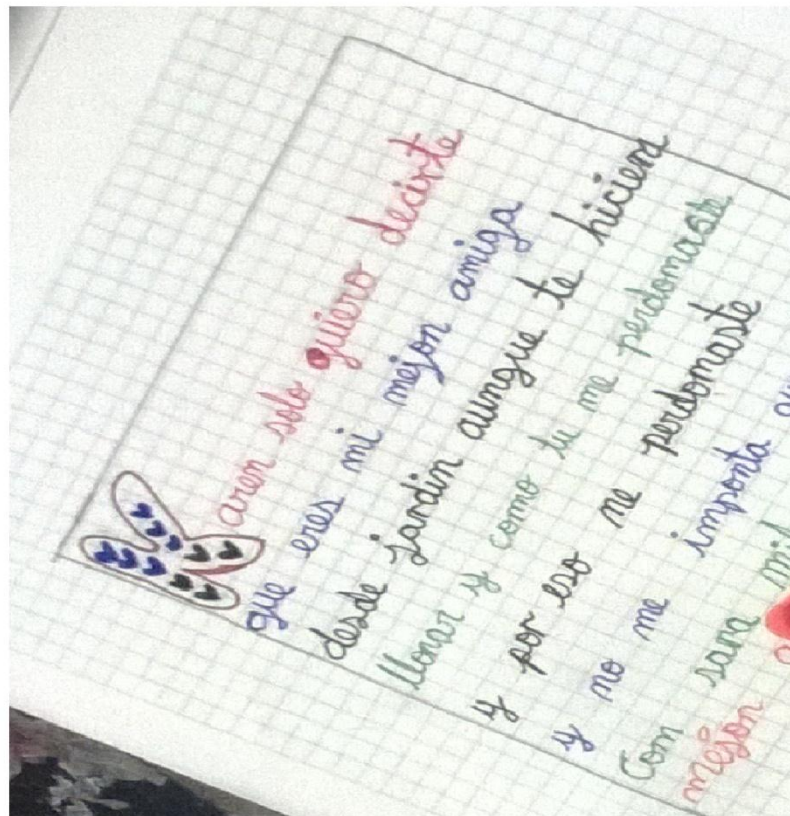 Karen solo quiero decirte
que eres mi mejon amiga
desde jardin aunque te hiciera
llonar y como tu me perdomaste
y por eso me perdomaste
y no me imponta
Com sara
mejon